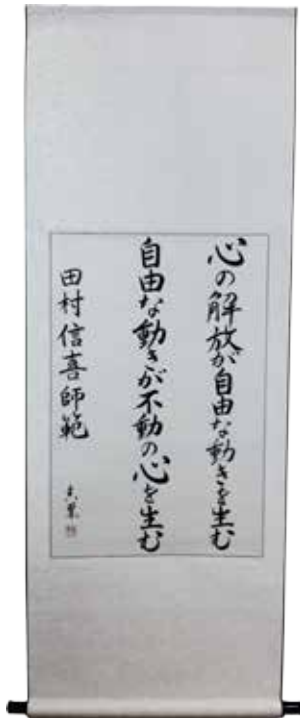 心の解放が自由な動きを生む
自由な動きが不動の心を生む
田村信喜師範